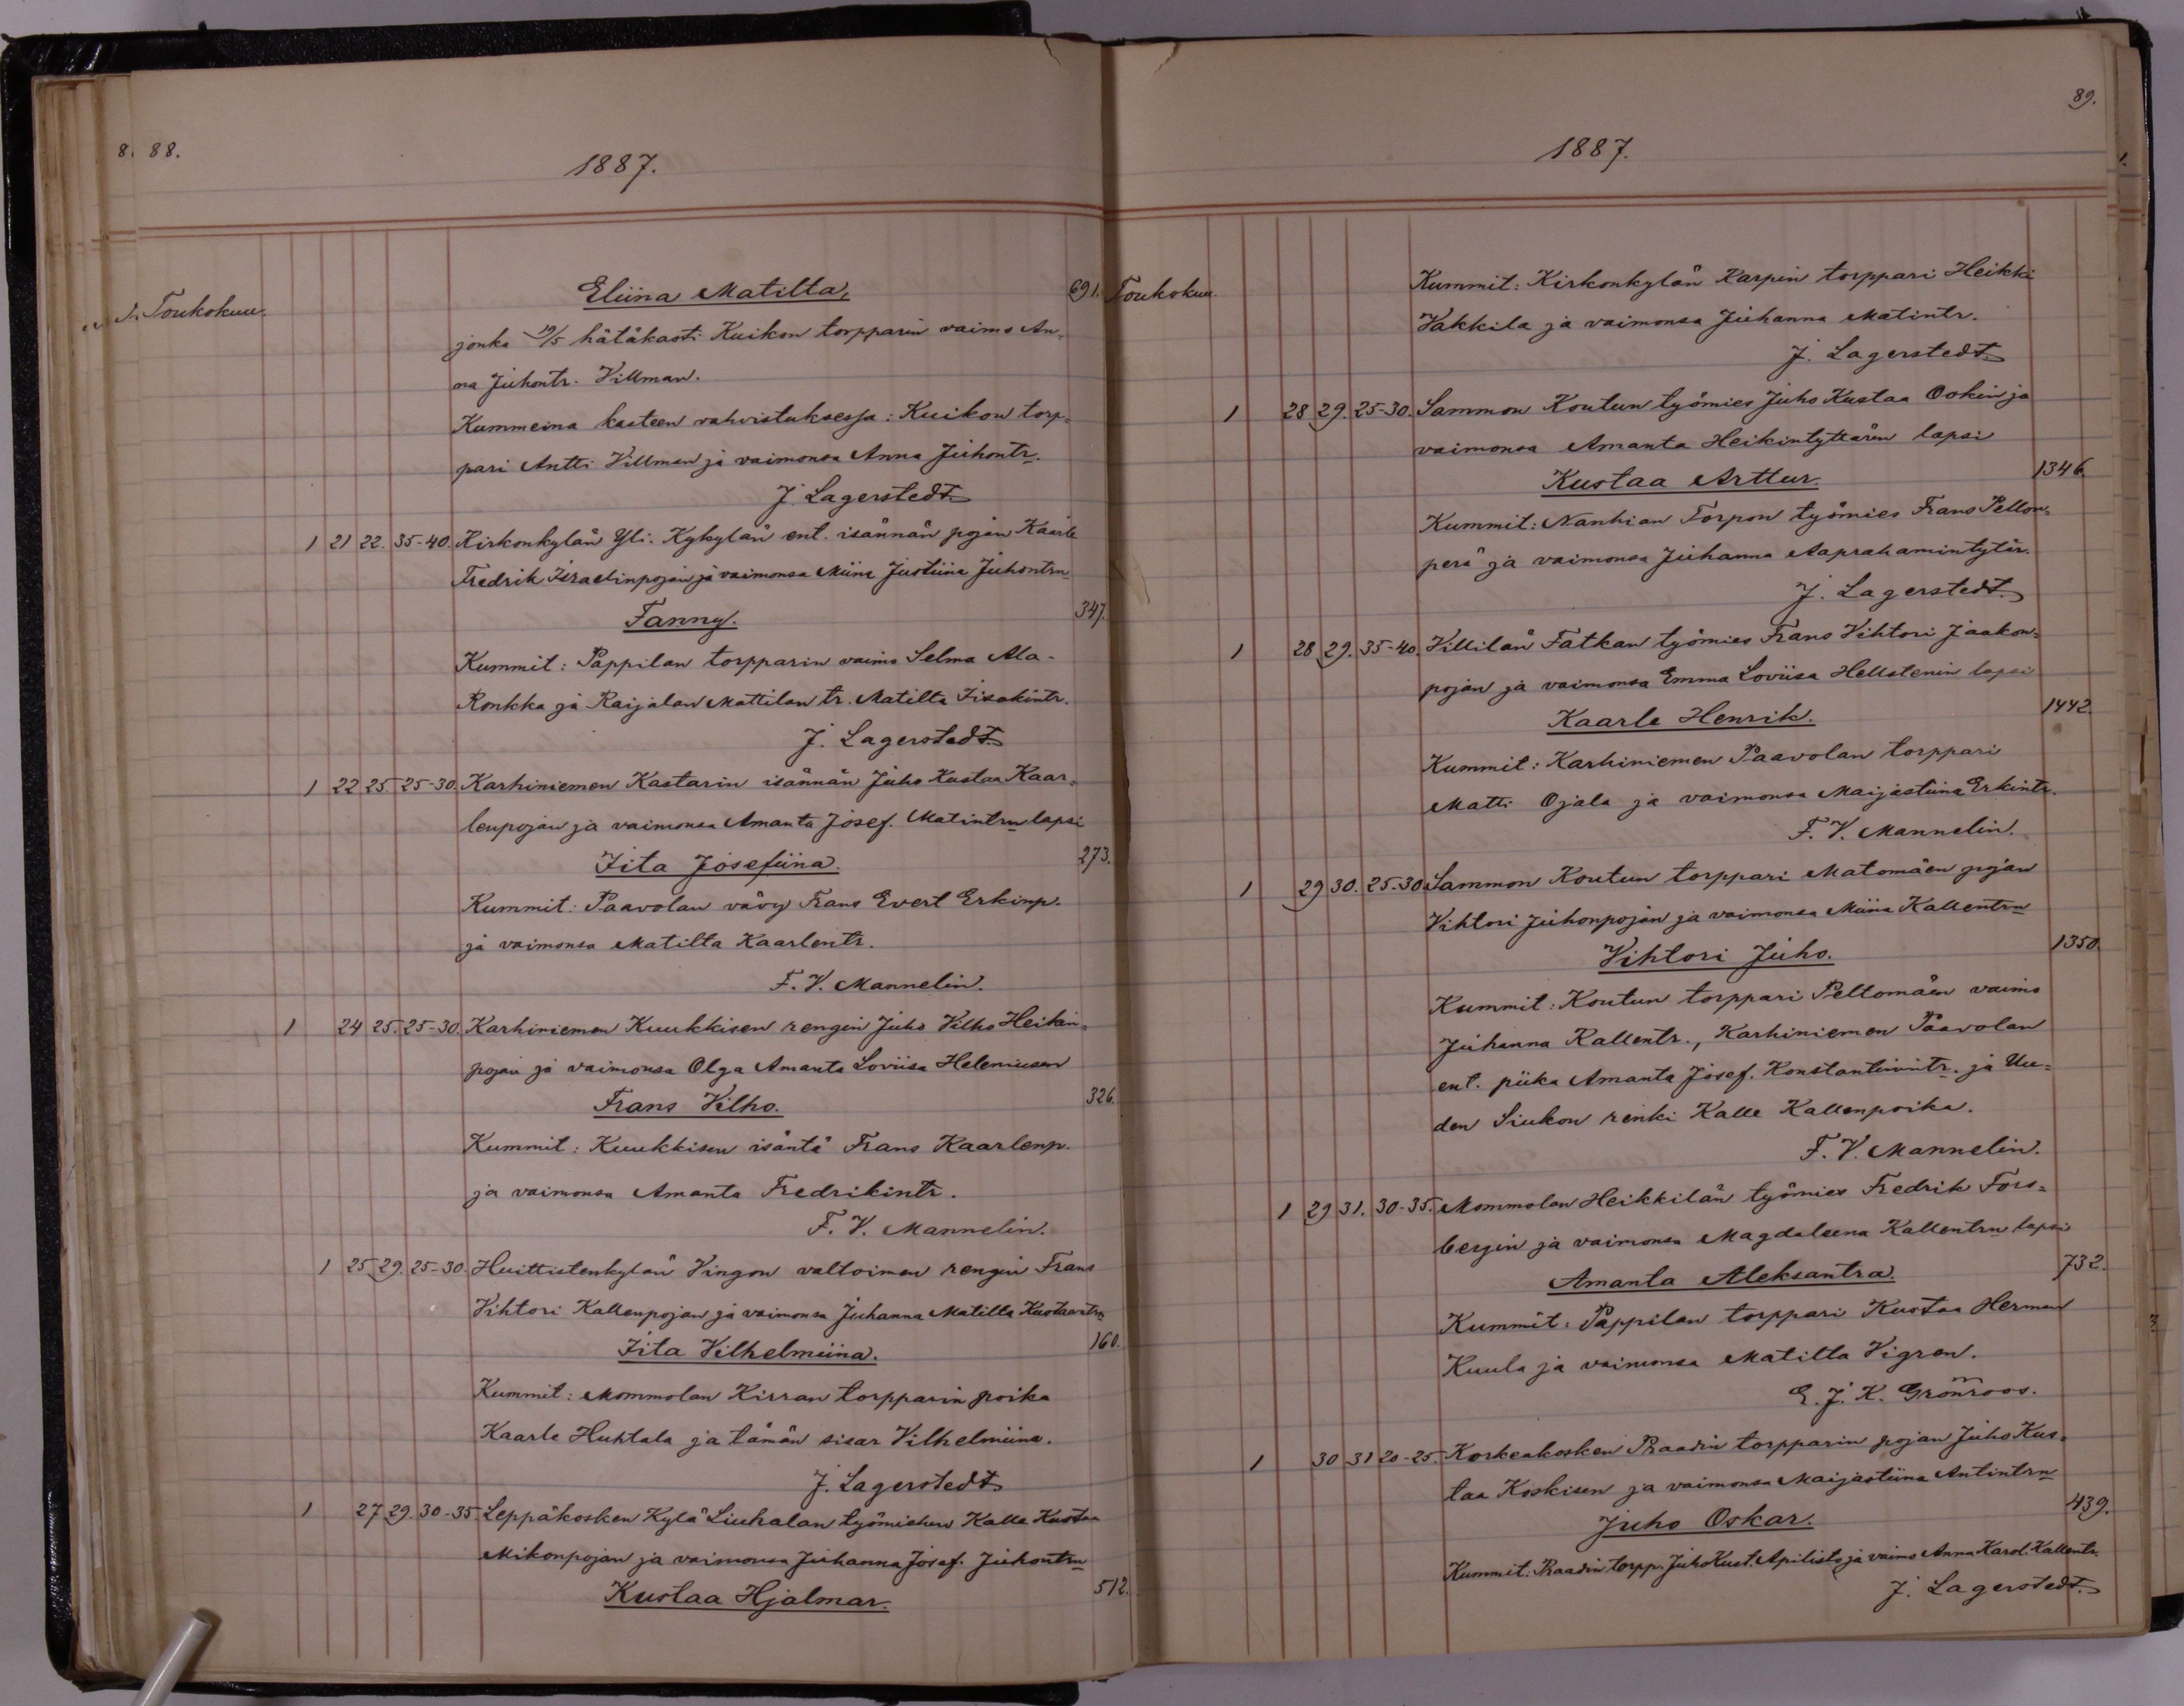 88.
1887.
Toukokuu.
Eliina Matilta, 691.
jonka 19/5 hätäkasti Kuikon torpparin vaimo An-
na Juhontr. Villman.
Kummeina kasteen vahvistuksessa: Kuikon torp-
pari Antti Villman ja vaimonsa Anna Juhontr.
J. Lagerstedt
1 21 22. 35-40. Kirkonkylän Yli-Kykylän ent. isännän pojan Kaarle
Fredrik Israelinpojan ja vaimonsa Miina Justiina Juhontrn
Fanny. 347.
Kummit: Pappilan torpparin vaimo Selma Ala-
Ronkka ja Raijalan Mattilan tr. Matilta Iisakintr.
J. Lagerstedt.
1 22 25. 25-30. Karhiniemen Kastarin isännän Juho Kustaa Kaar-
lenpojan ja vaimonsa Amanta Josef. Matintrn lapsi
Iita Josefiina. 273.
Kummit: Paavolan vävy Frans Evert Erkinp.
ja vaimonsa Matilta Kaarlentr.
F. V. Mannelin.
1 24 25. 25-30. Karhiniemen Kuukkisen rengin Juho Vilho Heikin-
pojan ja vaimonsa Olga Amanta Loviisa Heleniusen
Frans Vilho. 326.
Kummit: Kuukkisen isäntä Frans Kaarlenp.
ja vaimonsa Amanta Fredrikintr.
F. V. Mannelin.
1 25 29. 25-30. Huittistenkylän Vingon valtoimen rengin Frans
Vihtori Kallenpojan ja vaimonsa Juhanna Matilta Kustaantrn
Iita Vilhelmiina. 160.
Kummit: Mommolan Kirran torpparin poika
Kaarle Huhtala ja tämän sisar Vilhelmiina.
J. Lagerstedt
1 27 29. 30-35. Leppäkosken Kylä Liuhalan työmiehen Kalle Kustaa
Mikonpojan ja vaimonsa Juhanna Josef. Juhontrn
Kustaa Hjalmar. 512.
89.
1887.
Toukokuu.
Kummit: Kirkonkylän Karpin torppari Heikki
Vakkila ja vaimonsa Juhanna Matintr.
J. Lagerstedt
1 28 29. 25-30. Sammon Koutun työmies Juho Kustaa Ookin ja
vaimonsa Amanta Heikintyttären lapsi
Kustaa Arttur. 1346.
Kummit: Nanhian Torpon työmies Frans Pellon-
perä ja vaimonsa Juhanna Aaprahamintytär.
J. Lagerstedt.
1 28 29. 35-40. Villilän Fatkan työmies Frans Vihtori Jaakon-
pojan ja vaimonsa Emma Loviisa Hellstenin lapsi
Kaarle Henrik. 1442.
Kummit: Karhiniemen Paavolan torppari
Matti Ojala ja vaimonsa Maijastiina Erkintr.
F. V. Mannelin.
1 29 30. 25-30 Sammon Koutun torppari Matomäen pojan
Vihtori Juhonpojan ja vaimonsa Miina Kallentrn
Vihtori Juho. 1350.
Kummit: Koutun torppari Peltomäen vaimo
Juhanna Kallentr., Karhiniemen Paavolan
ent. piika Amanta Josef. Konstantinintr. ja Uu-
den Siukon renki Kalle Kallenpoika.
F. V. Mannelin.
1 29 31. 30-35. Mommolan Heikkilän työmies Fredrik Fors-
bergin ja vaimonsa Magdaleena Kallentrn lapsi
Amanta Aleksantra. 732.
Kummit: Pappilan torppari Kustaa Herman
Kuula ja vaimonsa Matilta Vigren.
E. J. K. Grönroos.
1 30 31 20-25. Korkeakosken Raadin torpparin pojan Juho Kus-
taa Koskisen ja vaimonsa Maijastiina Antintrn
Juho Oskar. 439.
Kummit: Raadin torpp. Juho Kust. Apilisto ja vaimo Anna Karol. Kallentr.
J. Lagerstedt.